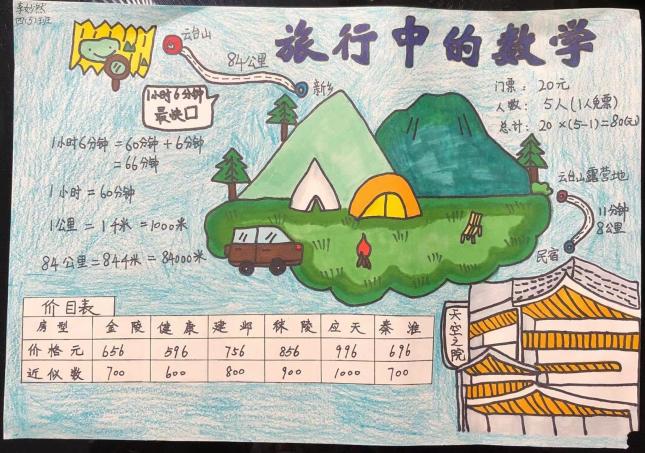 李妙然
四(5)班
旅行中的数学
云台山
84公里
新乡
1小时6分钟
最快口
1小时6分钟=60分钟+6分钟
=66分钟
1小时=60分钟
1公里=1千米=1000米
84公里=84千米=84000米
门票:20元
人数:5人(1人免票)
总计:20×(5-1)=80(元)
云台山露营地
11分钟
8公里
民宿
天空之院
价目表
房型 金陵 健康 建邺 秣陵 应天 秦淮
价格元 656 596 756 856 996 696
近似数 700 600 800 900 1000 700